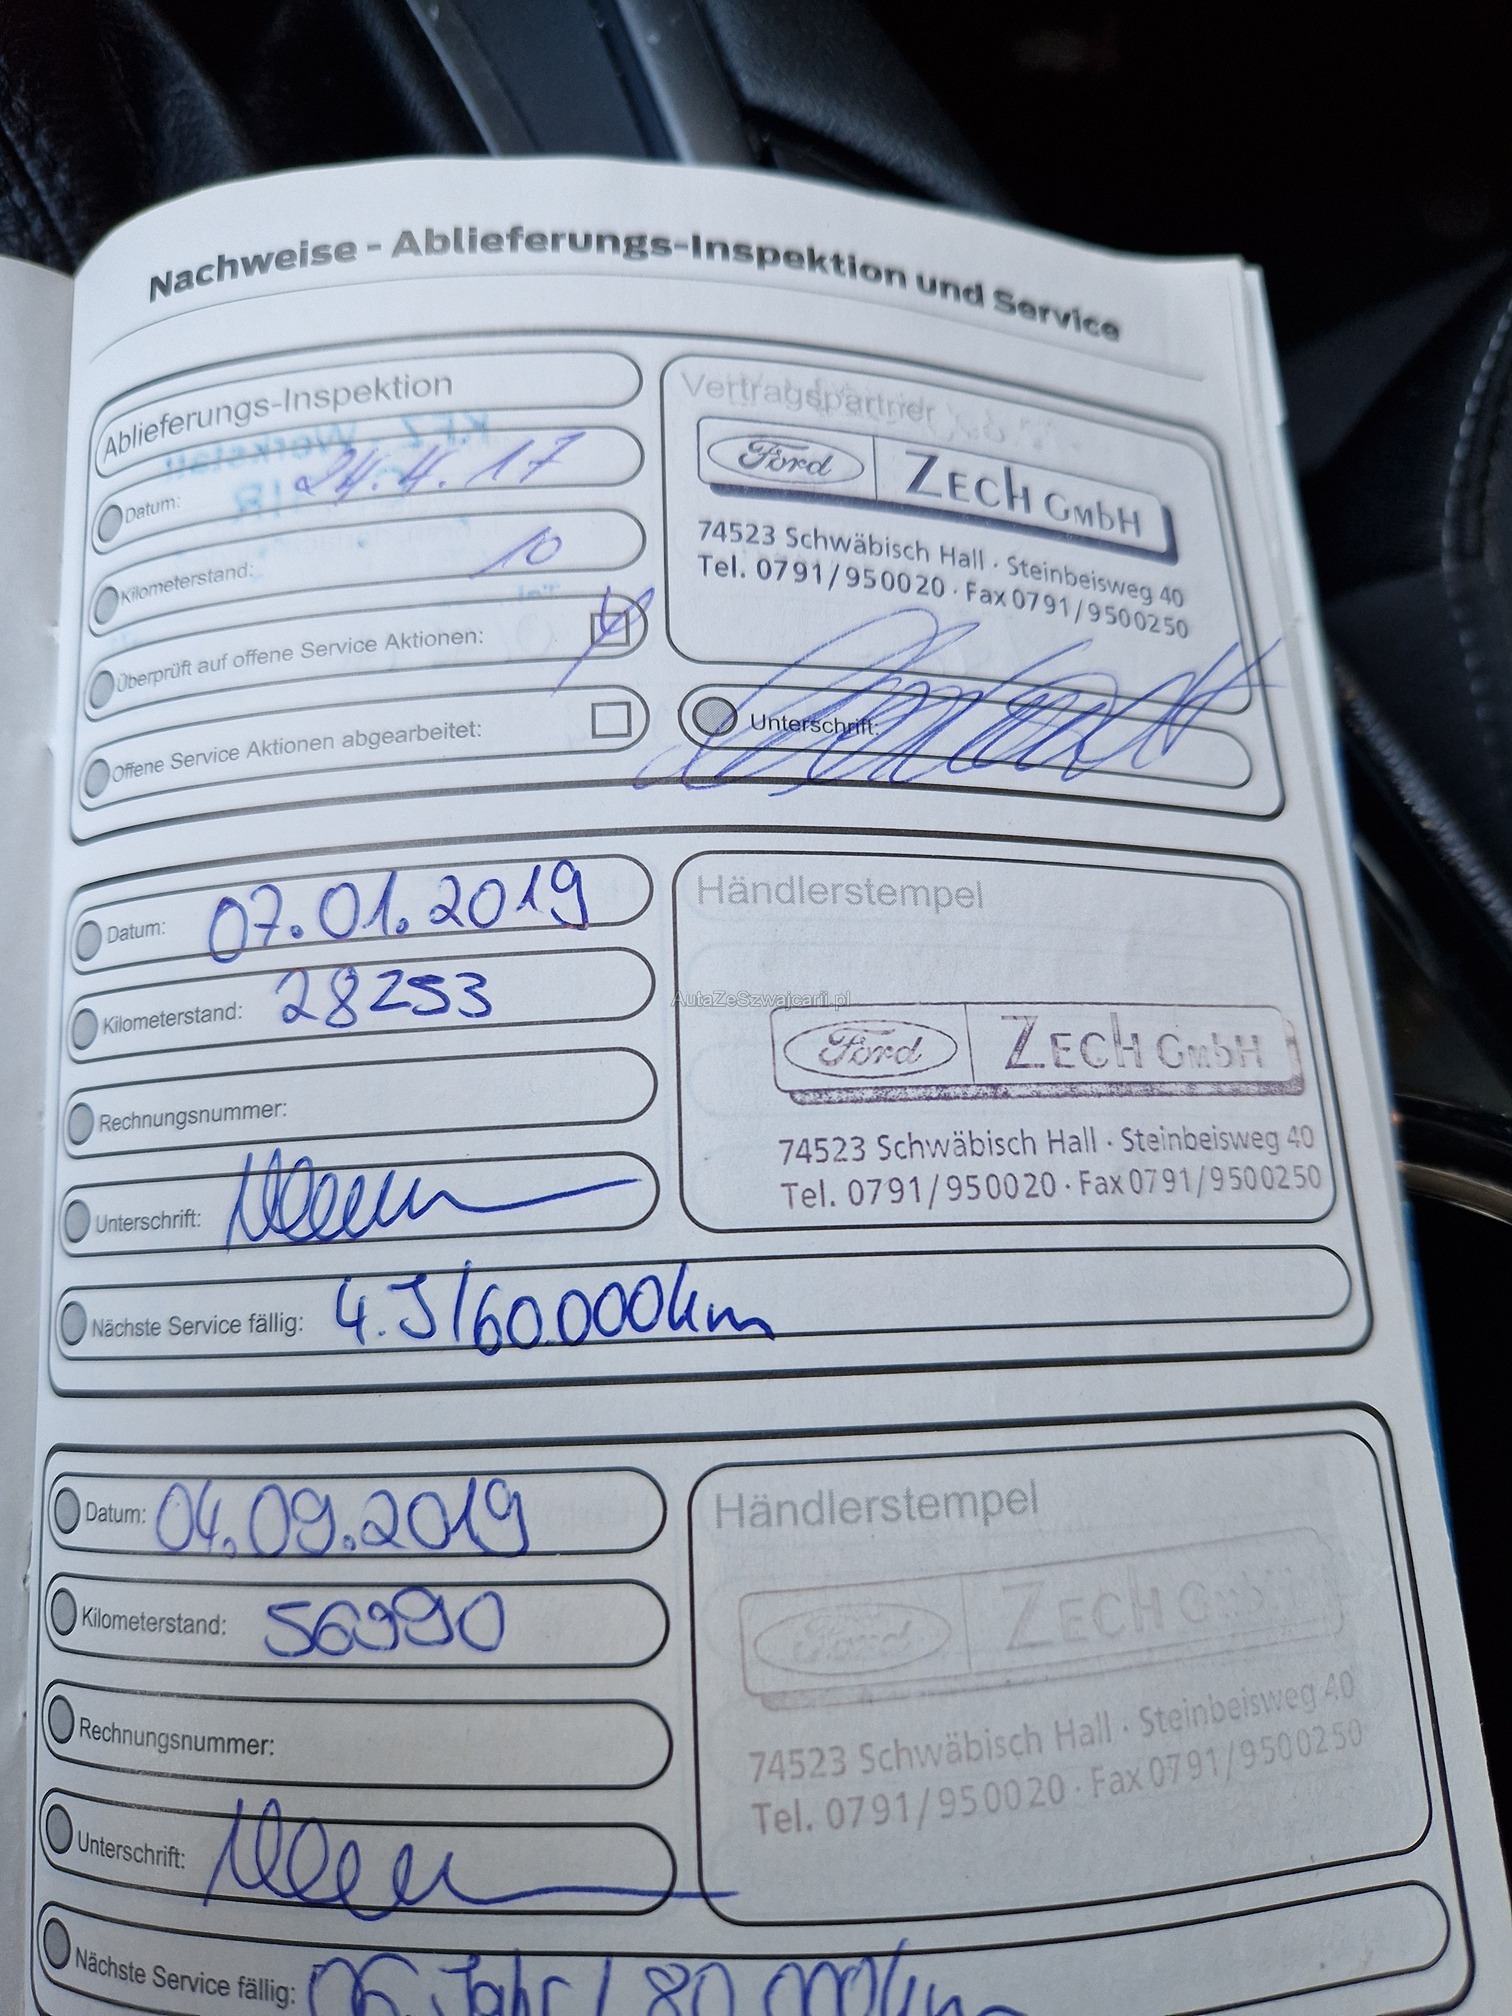 Nachweise - Ablieferungs-Inspektion und Service
Ablieferungs-Inspektion
Datum: 24.4.17
Kilometerstand: 10
Überprüft auf offene Service Aktionen:
Offene Service Aktionen abgearbeitet:
Vertragspartner
Ford ZECH GMBH
74523 Schwäbisch Hall · Steinbeisweg 40
Tel. 0791/950020 · Fax 0791/9500250
Unterschrift:
Datum: 07.01.2019
Kilometerstand: 28253
Rechnungsnummer:
Unterschrift:
Händlerstempel
AutaZeSzwajcarii.pl
Ford ZECH GMBH
74523 Schwäbisch Hall · Steinbeisweg 40
Tel. 0791/950020 · Fax 0791/9500250
Nächste Service fällig: 4.J/60.000km
Datum: 04.09.2019
Kilometerstand: 56990
Rechnungsnummer:
Unterschrift:
Händlerstempel
Ford ZECH GMBH
74523 Schwäbisch Hall · Steinbeisweg 40
Tel. 0791/950020 · Fax 0791/9500250
Nächste Service fällig: 06 Jahr / 80 000km